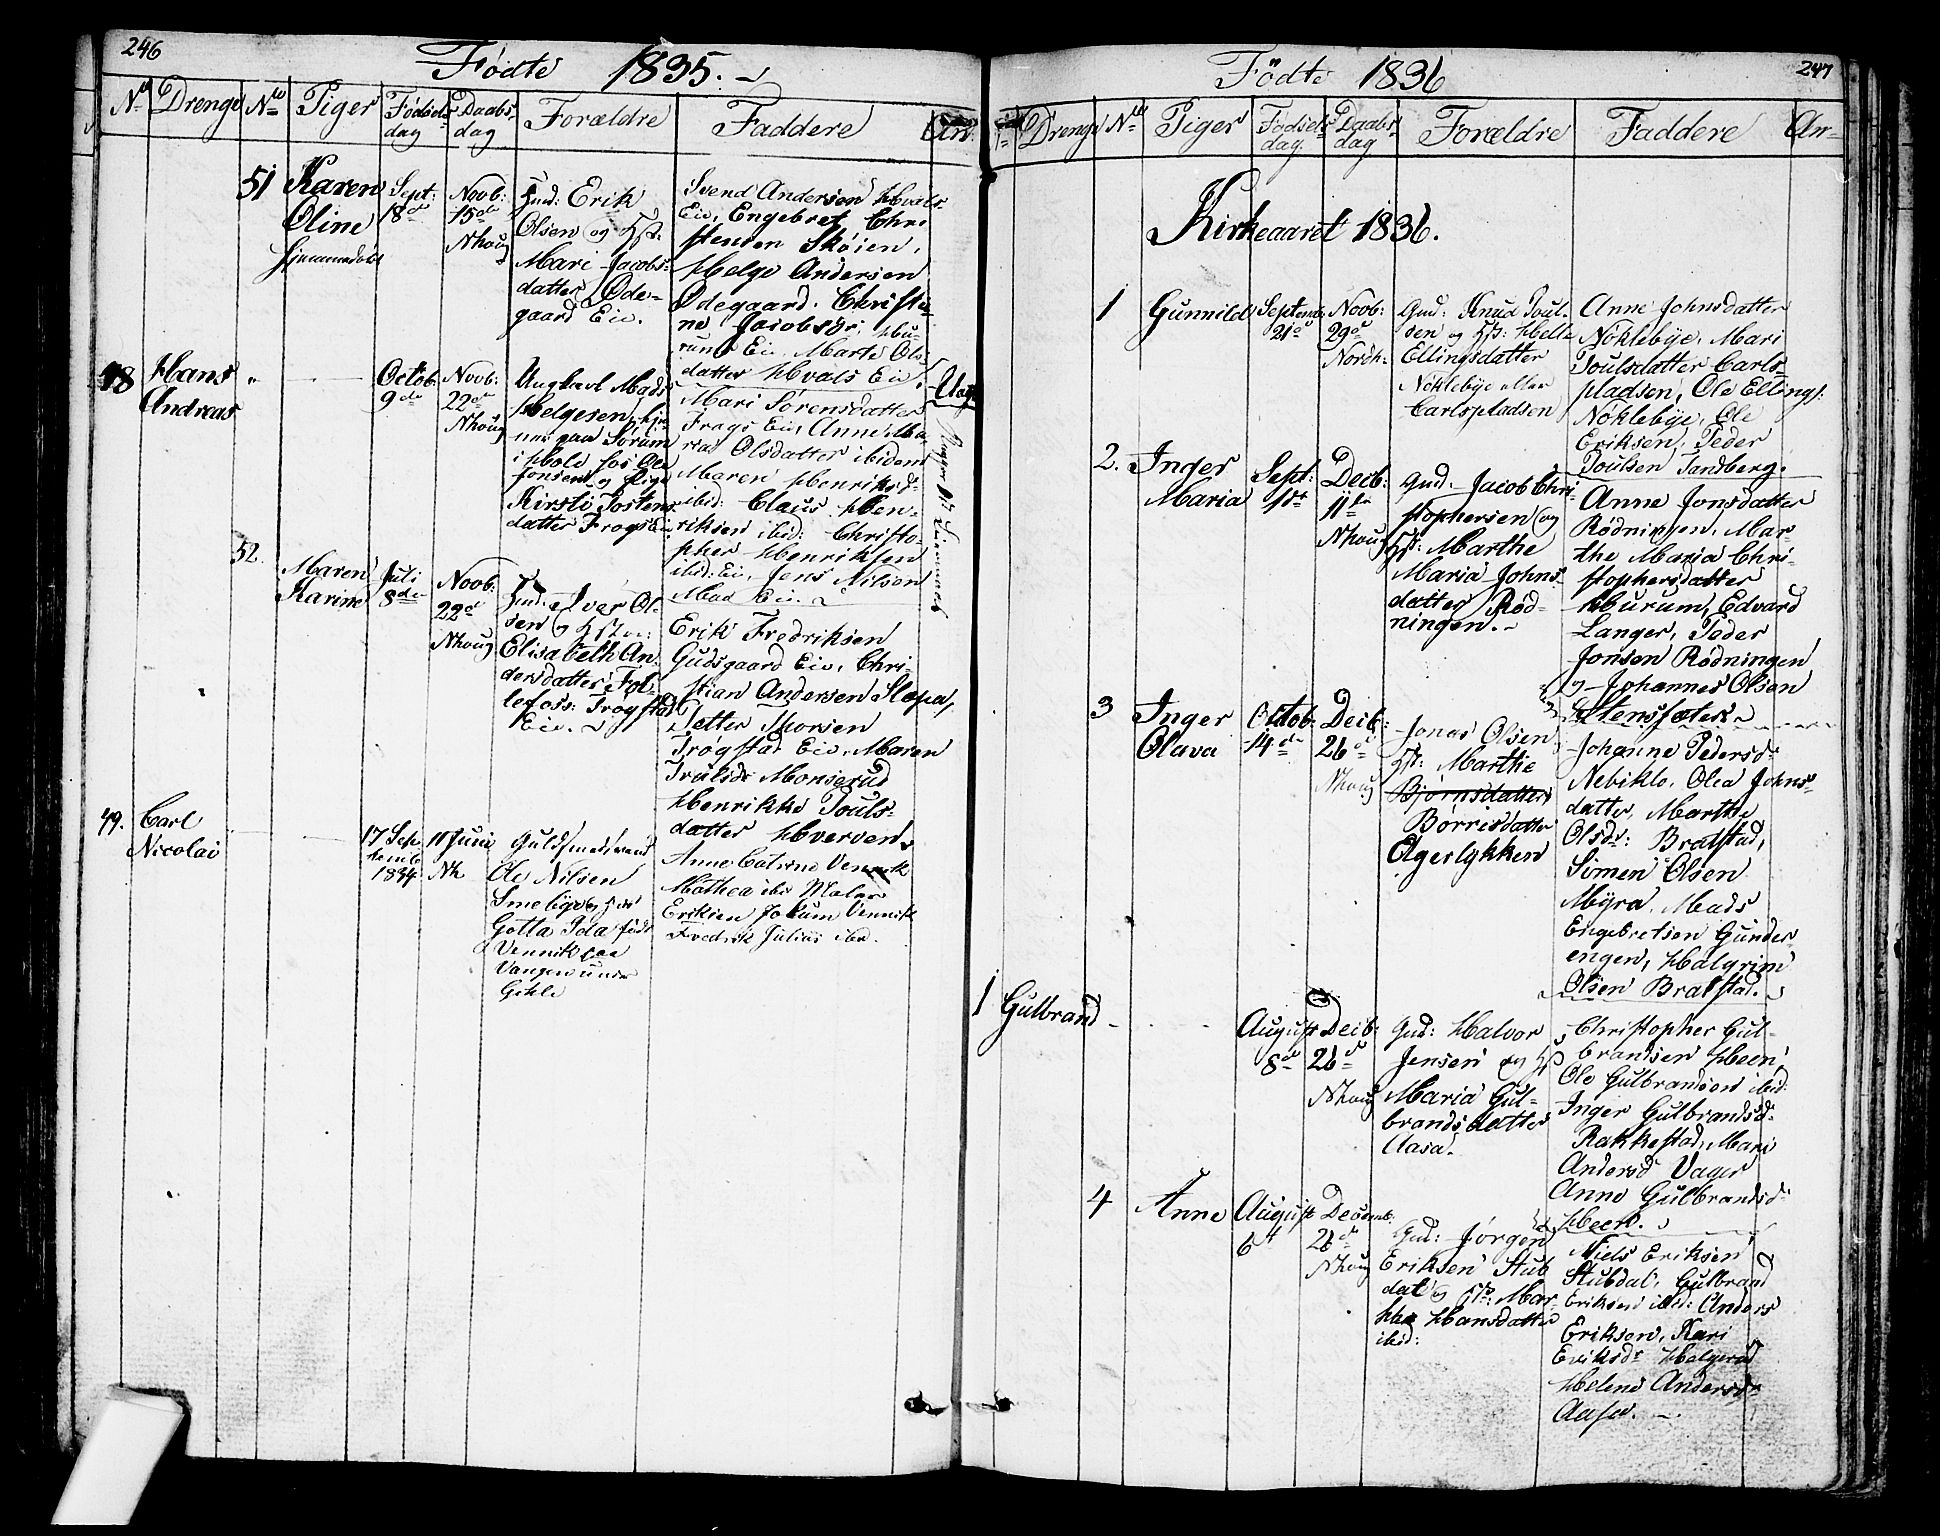 246
Födte 1835.
No Drenge No Piger Födsels dag Daabs dag Forældre Faddere An.
51 Karen Oline
hjemmedöbt
Sept: 18de
Novb: 15de
Nhoug
Gmd: Erik
Olsen og Hst:
Mari Jacobs-
datter Öde-
gaard Eie.
Svend Andersen Hvals
Eie, Engebret Chri
stensen Sköien,
Helge Andersen
Ödegaard. Christi-
ne Jacobsdr:
rum Eie. Marte Ols:
datter Hvals Eie.
48 Hans
Andreas
Octob: 9de
Novb: 22de
Nhoug
Ungkarl Mads
Helgesen, tje-
ner paa Sörum
i Hole hos Ole
Jonsen og Pige
Kirsti Jostens
datter Frogs Ei.
Mari Sörensdatter
Frogs Eie, Anne Ma
ria Olsdatter ibidem
Maren Henriksd-
ibid: Claus Hen-
riksen ibid: Christo-
pher Henriksen
ibid: Eie, Jens Nilsen
Moe Eie.
Uægt
52. Maren
Karine
Juli 8de
Novb: 22de
Nhoug
Gmd: Iver Ol-
sen og Hst:
Elisabeth An-
dersdatter Fol-
lefoss: Trögstad
Eie.
Erik Fredriksen
Gudsgaard Eie, Chri-
stian Andersen Slepa,
Petter Morsen
Trögstad Eie, Maren
Trulsdr Monserud
Henrikke Pouls-
datter Hverven.
49. Carl
Nicolai
17 Sep
tembr
1834
11 Juni
Nh
Guldsmedsvend
Ole Nilsen
Smebye og
Gotta Ida födt
Vennik paa
Vangen under
Gihle
Anne Catrine Vennik
Mathea ibid
Eriksen Jokum Vennik
Fredrik Julius ibid.
247
Födte 1836
Drenge No Piger Födsels dag. Daabs dag Forældre Faddere An-
Kirkeaaret 1836.
1 Gunnild
Septemb: 21de
Novb: 29de
Nordh:
Gmd: Knud Poul-
sen og Hst: Helle
Ellingsdatter
Nöklebye eller
Carlspladsen
Anne Johnsdatter
Nöklebye, Mari
Poulsdatter Carls-
pladsen, Ole Ellings:
Nöklebye, Ole
Eriksen, Peder
Poulsen Tandberg.
2. Inger
Maria
Sept: 1st
Decb: 11te
Nhoug
Gmd. Jacob Chri-
stophersen og
Hst: Marthe
Maria Johns
datter Röd-
ningen.
Anne Jonsdatter
Rödningen, Mar-
the Maria Chri-
stophersdatter
Hurum, Edvard
Langer, Peder
Jonsen Rödningen
og Johannes Olsen
Stensfæter.
3 Inger
Olava
Octob: 14de
Decb: 26de
Nhoug
Jonas Olsen
Hst: Marthe
Björnsdatter
Börresdatter
Agerlykken
Johanne Pedersd-
Nebiklo, Olea Johns-
datter, Marthe
Olsdr: Bratstad,
Simen Olsen
Myra, Mads
Engebretsen Gunder-
engen, Halgrim
Olsen Bratstad.
1 Gulbrand
August 8de
Decb: 26de
Nhoug
Gmd: Halvor
Jensen og Hst
Maria Gul-
brandsdatter
Aasa.
Christopher Gul-
brandsen Heen,
Ole Gulbrandsen ibid:
Inger Gulbrandsd-
Rakkestad, Mari
Andersd Vager
Anne Gulbrandsd-
Heen.
4 Anne
August 6t
Decemb: 26de
Nhoug
Gmd: Jörgen
Eriksen Stub
dal og Hst: Mar-
the Hansdatter
ibid:
Niels Eriksen
Stubdal, Gulbrand
Eriksen ibid: Anders
Eriksen, Kari
Eriksdr Halgerud
Helene Andersdr
Aasa.